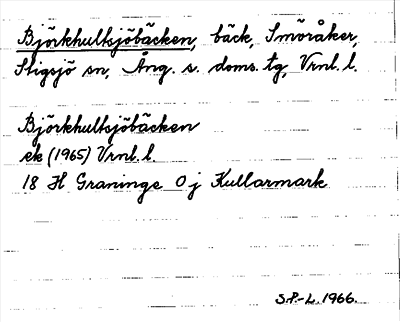 Björkhultsjöbäcken, bäck, Smöråker,
Stigsjö sn, Ång. s. doms. tg, Vrnl. l.
Björkhultsjöbäcken
ek (1965) Vrnl. l.
18 H Graninge 0 j Kullarmark
S.P.-L. 1966.